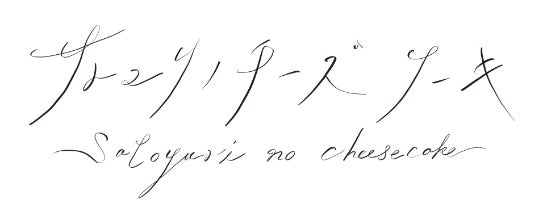 サトユリノチーズケーキ
Satoyuri no cheesecake